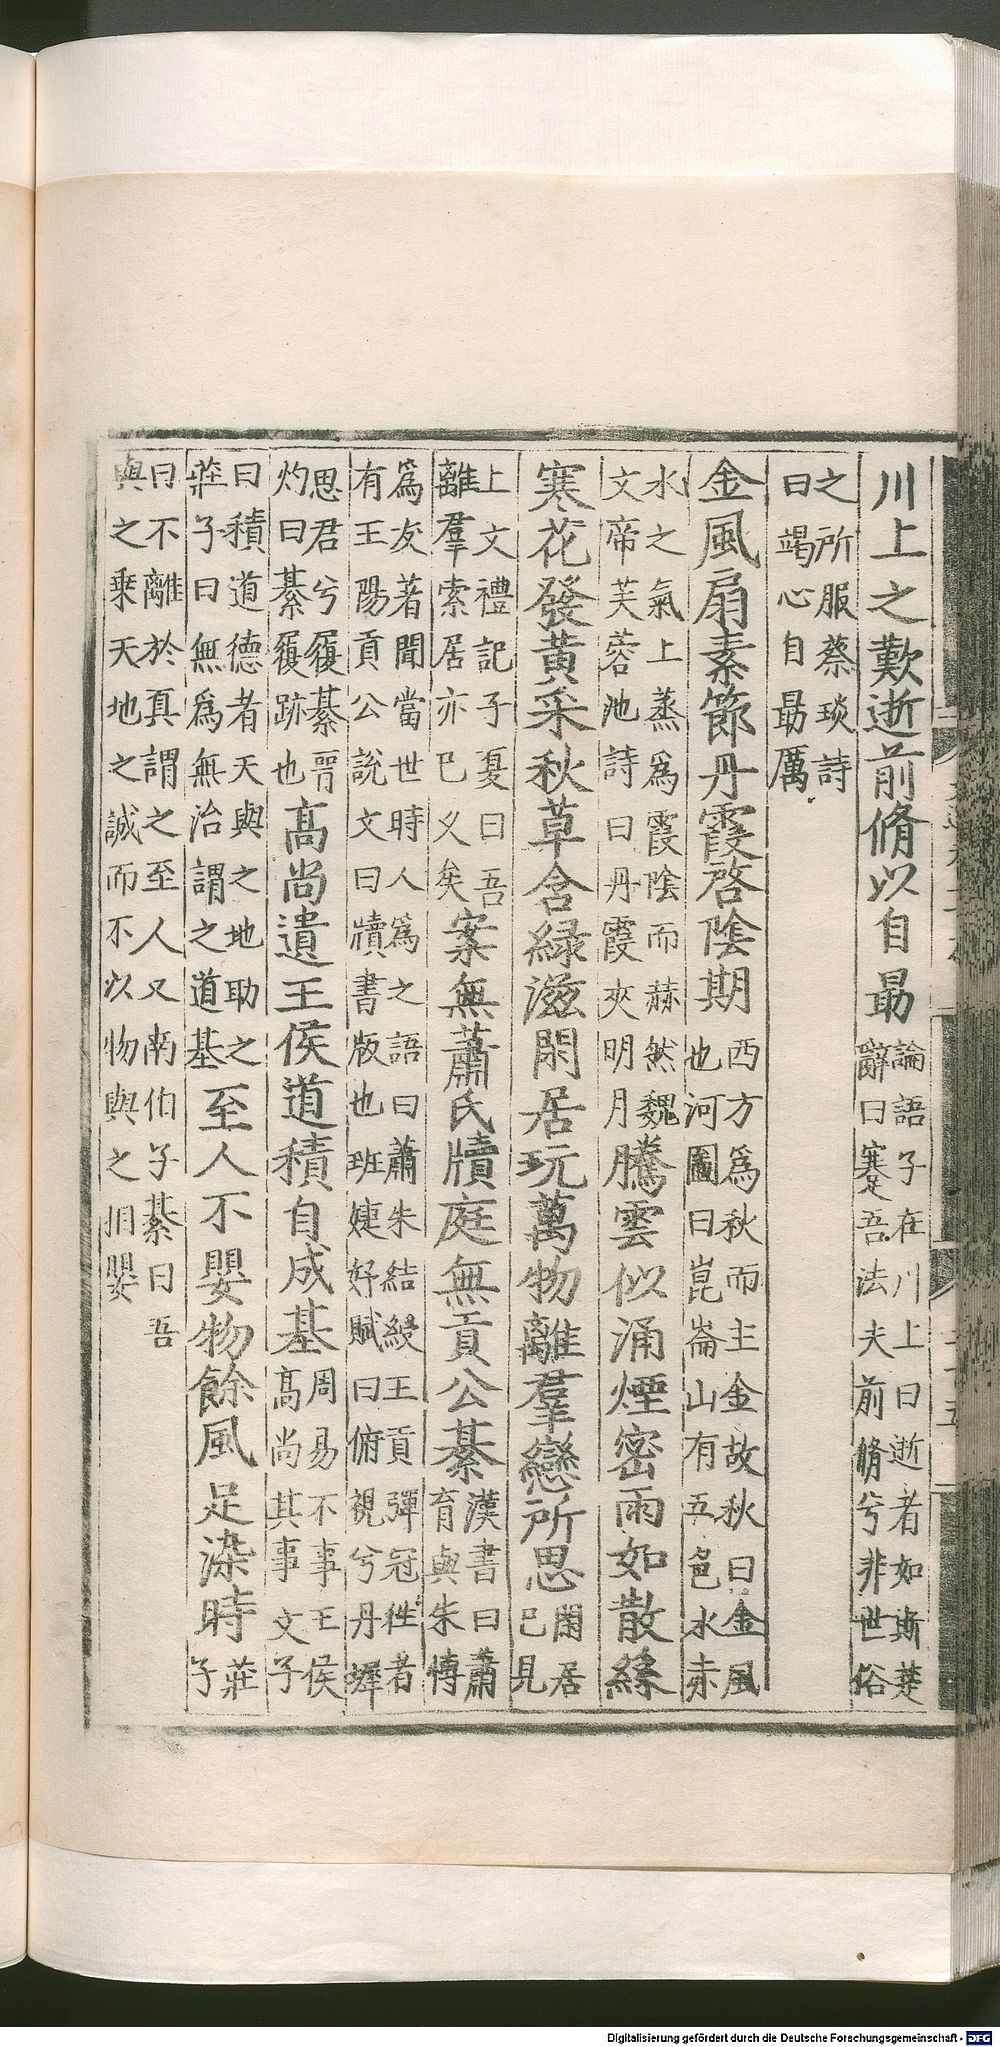 川上之歎逝前脩以自勖論語子在川上曰逝者如斯楚辭曰謇吾法夫前脩兮非世俗
之所服蔡琰詩曰竭心自勖厲
金風扇素節丹霞啓陰期西方爲秋而主金故秋曰金風也河圖曰崑崙山有五色水赤
水之氣上蒸爲霞陰而赫然魏文帝芙蓉池詩曰丹霞夾明月騰雲似涌煙密雨如散絲
寒花發黃采秋草含綠滋閑居玩萬物離羣戀所思閑居已見
上文禮記子夏曰吾離羣索居亦已乆矣案無蕭氏牘庭無貢公綦漢書曰蕭育與朱博
爲友著聞當世時人爲之語曰蕭朱結綬王貢彈冠徃者有王陽貢公說文曰牘書版也班婕妤賦曰俯視兮丹墀
思君兮履綦晉灼曰綦履跡也高尚遺王侯道積自成基周易不事王侯高尚其事文子
曰積道德者天與之地助之莊子曰無爲無治謂之道基至人不嬰物餘風足染時莊子
曰不離於真謂之至人又南伯子綦曰吾與之乗天地之誠而不以物與之相嬰
Digitalisierung gefördert durch die Deutsche Forschungsgemeinschaft - DFG